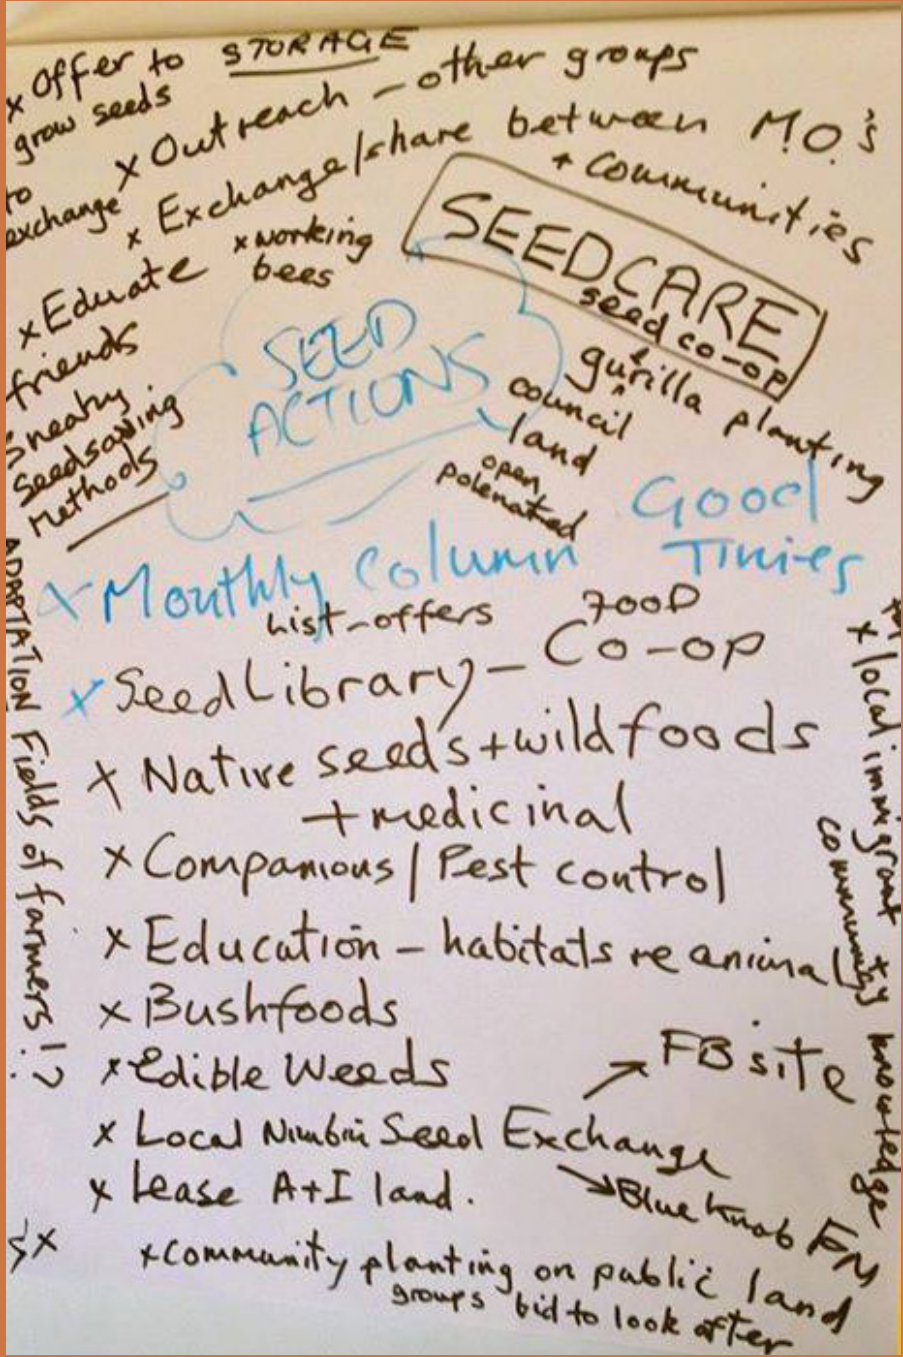 x Offer to
grow seeds
to
exchange
STORAGE
x Outreach - other groups
x Exchange/share between M.O.'s
+ communities
x working
bees
x Educate
friends
Sneaky
Seedsaving
Methods
SEEDCARE
seed co-op
SEED
ACTIONS
gurilla planting
council
land
open
polenated
x Monthly Column Good
Times
List-offers
x Seed Library - FOOD
Co-op
x Native seeds + wild foods
+ medicinal
x Companions / Pest control
x Education - habitats re animals
x Bushfoods
x Edible Weeds
x Local Nimbin Seed Exchange
FB site
Blue Knob FM
x Lease A+I land.
x community planting on public land
groups bid to look after
ADAPTATION Fields of farmers!?
x local immigrant knowledge
community